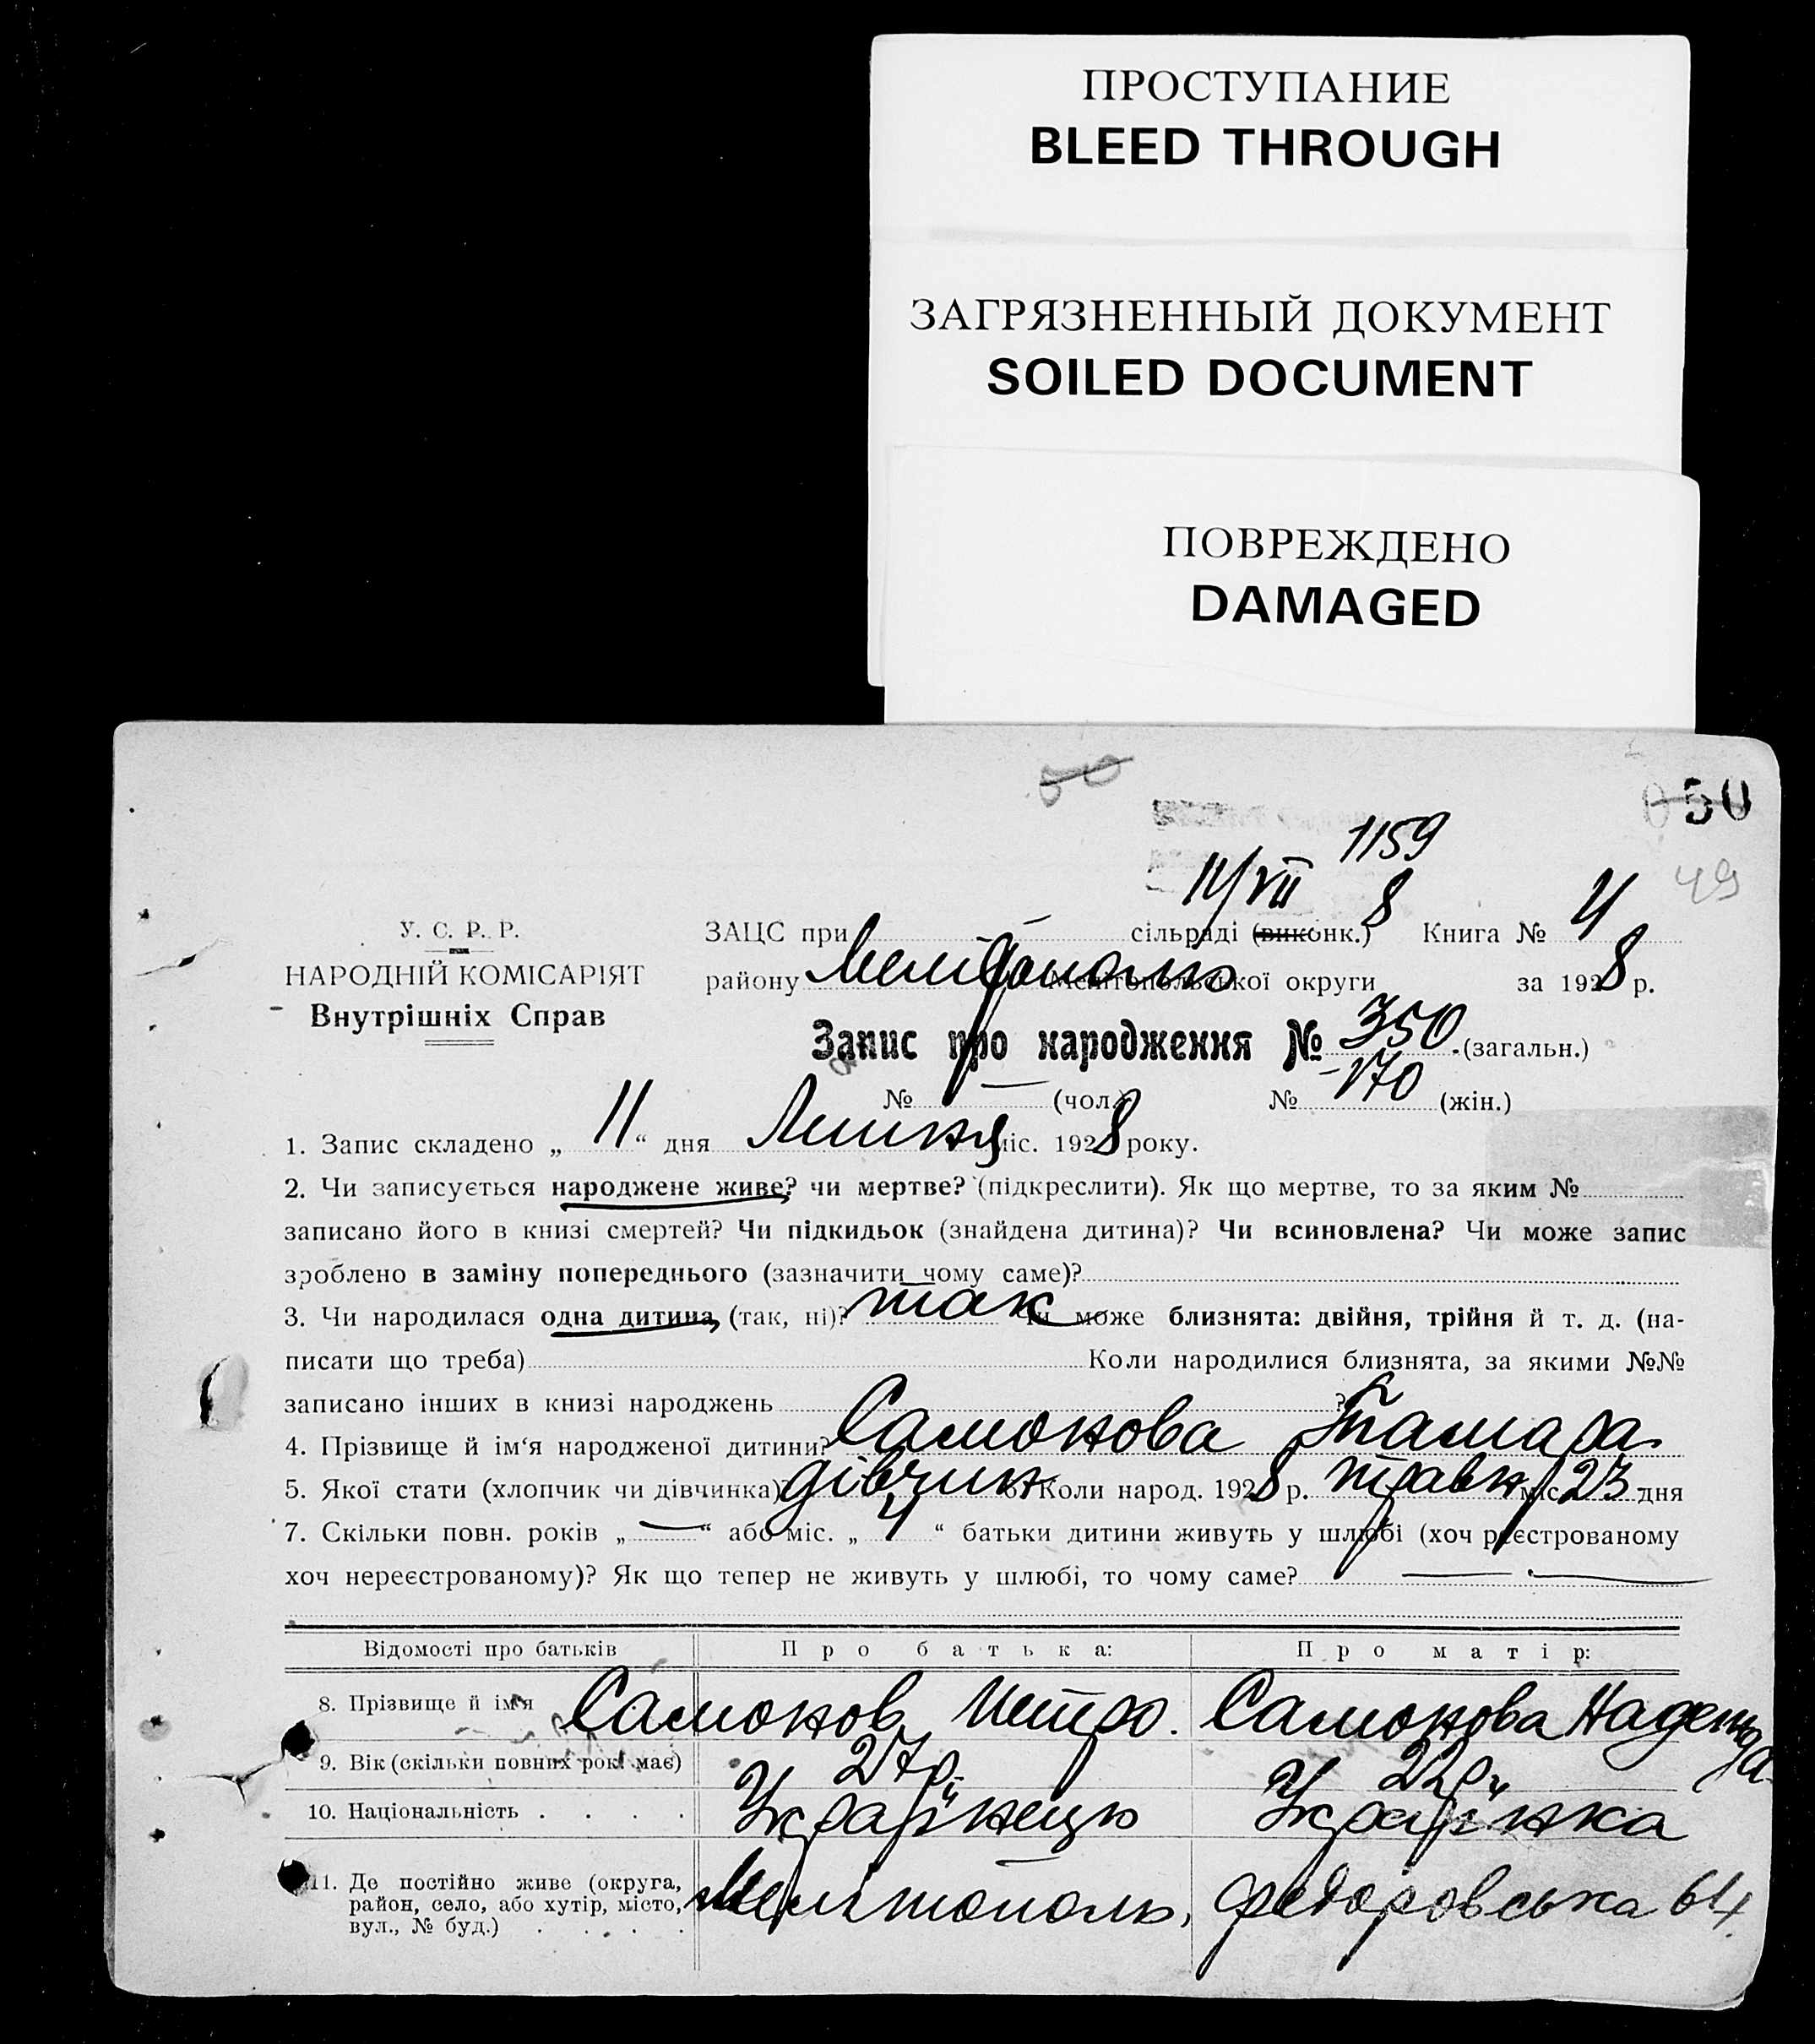 ПРОСТУПАНИЕ
BLEED THROUGH
ЗАГРЯЗНЕННЫЙ ДОКУМЕНТ
SOILED DOCUMENT
ПОВРЕЖДЕНО
DAMAGED
50
050
1159
49
11/VII 8
У. С. Р. Р.
НАРОДНІЙ КОМІСАРІЯТ
Внутрішніх Справ
ЗАЦС при сільраді (виконк.) Книга № 4
району Мелітополь Мелітопольської округи за 1928 р.
Запис про народження № 350 (загальн.)
№ — (чол.) № 170 (жін.)
1. Запис складено „ 11 “ дня Липня міс. 1928 року.
2. Чи записується народжене живе? чи мертве? (підкреслити). Як що мертве, то за яким №
записано його в книзі смертей? Чи підкидьок (знайдена дитина)? Чи всиновлена? Чи може запис
зроблено в заміну попереднього (зазначити чому саме)?
3. Чи народилася одна дитина, (так, ні)? так Чи може близнята: двійня, трійня й т. д. (на-
писати що треба) Коли народилися близнята, за якими №№
записано інших в книзі народжень ?
4. Прізвище й ім‘я народженої дитини? Самонова Тамара
5. Якої стати (хлопчик чи дівчинка)? дівчин 6. Коли народ. 1928 р. травня міс. 23 дня
7. Скільки повн. років „ — “ або міс. „ 4 “ батьки дитини живуть у шлюбі (хоч реєстрованому
хоч нереєстрованому)? Як що тепер не живуть у шлюбі, то чому саме? —
Відомості про батьків Про батька: Про матір:
8. Прізвище й ім‘я Самонов Петро. Самонова Надежда
9. Вік (скільки повних рок. має) 27 р. 22 р.
10. Національність . . . . Українець Українка
11. Де постійно живе (округа,
район, село, або хутір, місто,
вул., № буд.) . . . . Мелітополь, Федоровська 64.